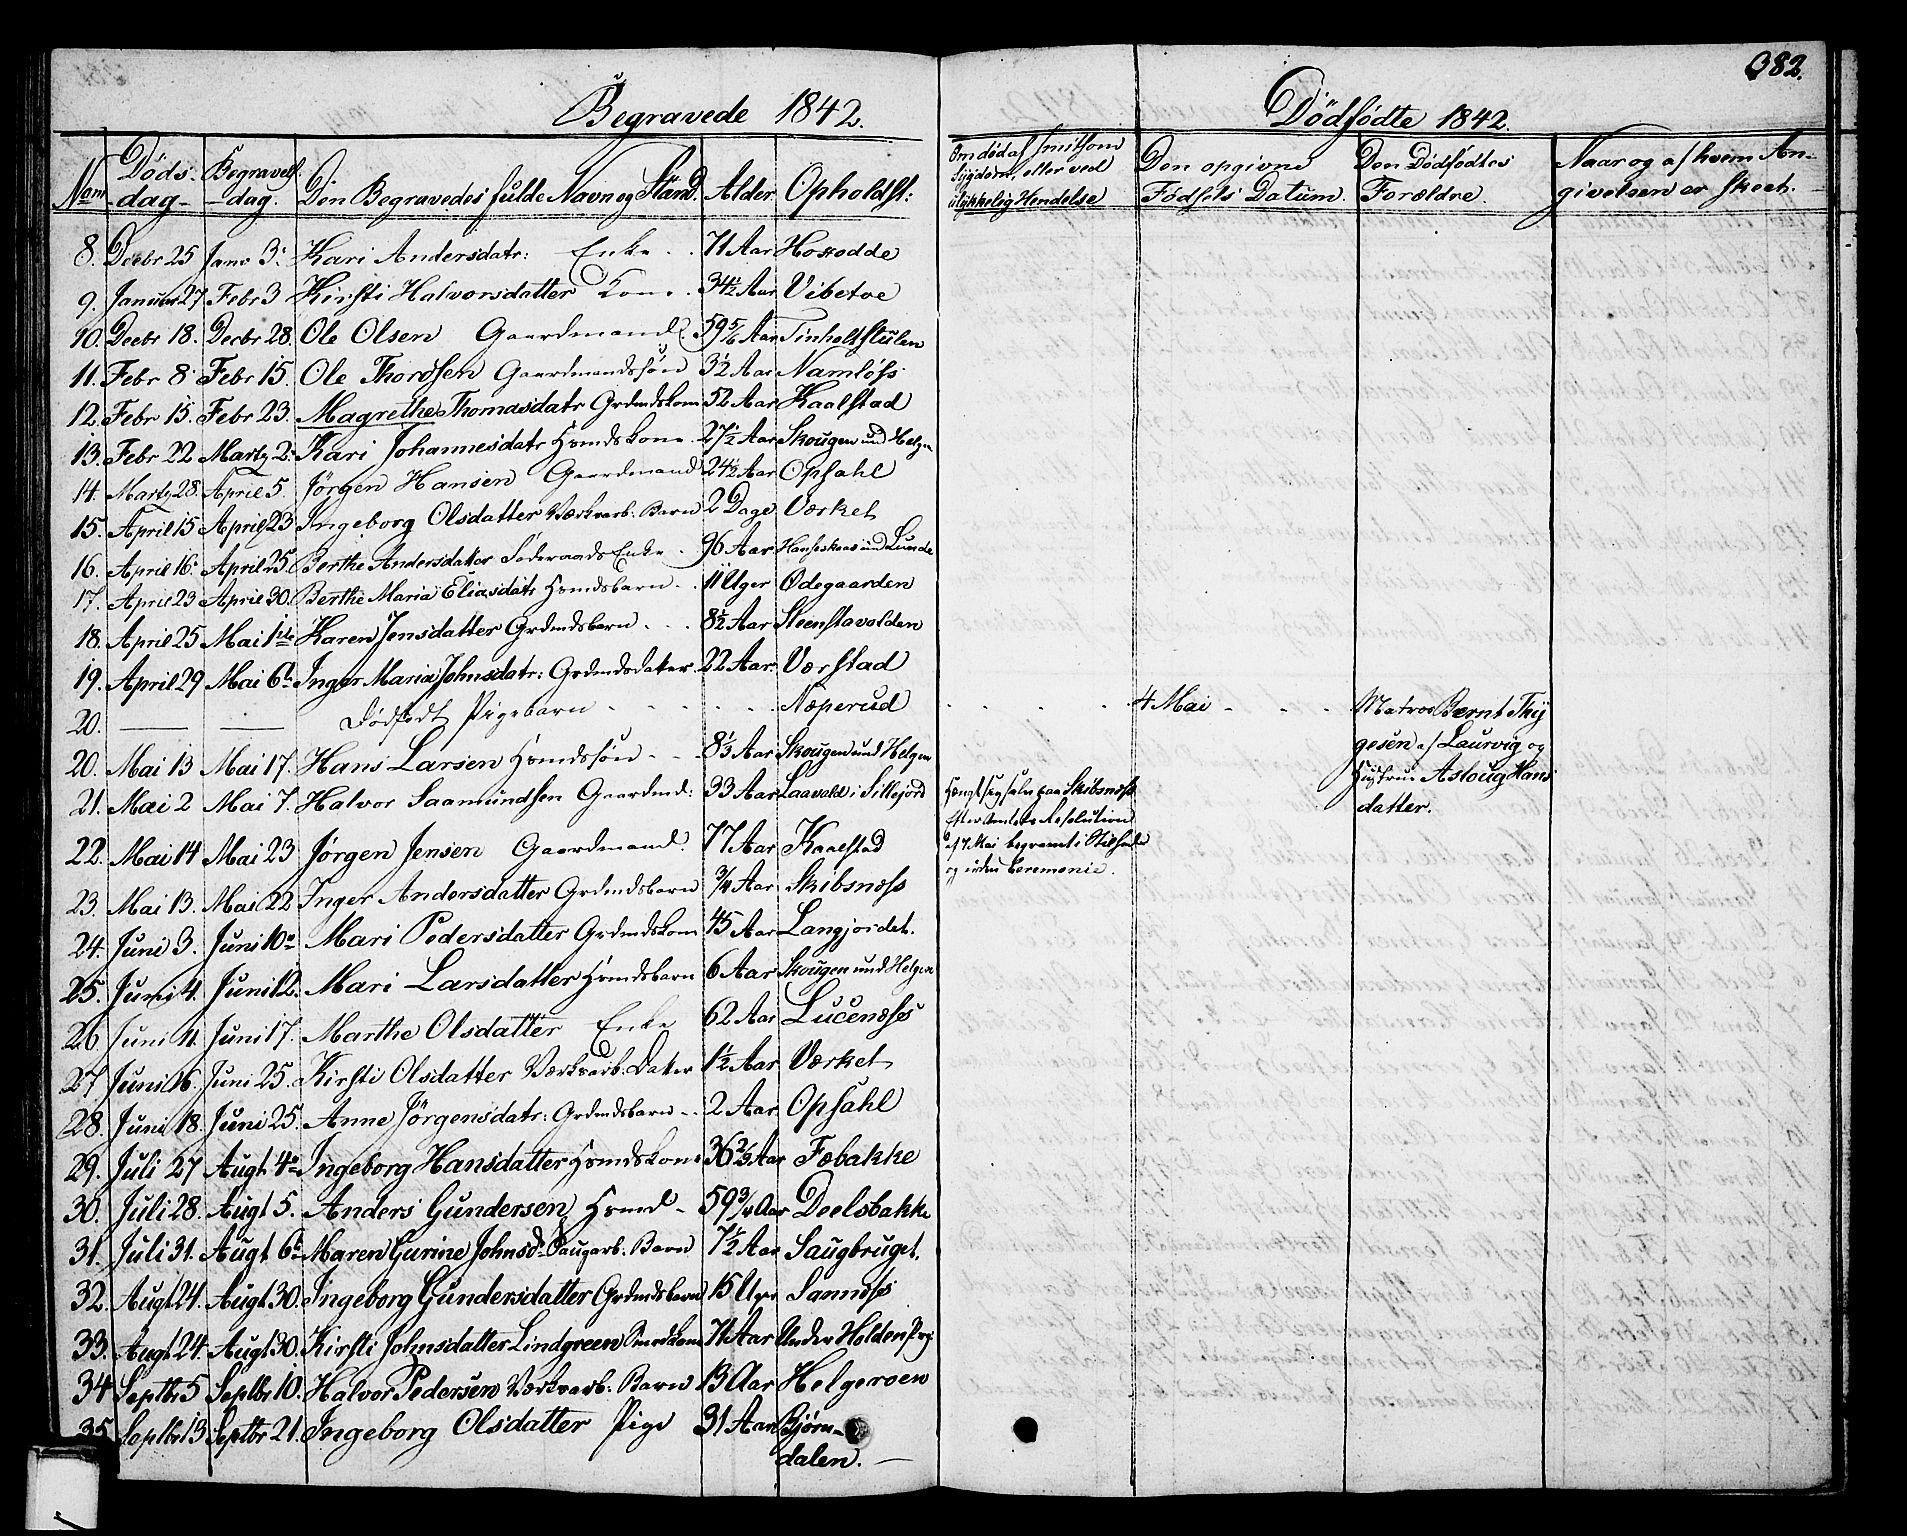 382.
Begravede 1842.
Dödfödte 1842.
Num
Döds-dag
Begravels-dag.
Den Begravedes fulde Navn og Stand.
Alder
Opholdst:
Om död af smitsom Sygdom, eller ved ulykkelig Hendelse
Den opgivne Födsels Datum.
Den Dödfödtes Forældre.
Naar og af hvem Angivelsen er skeet.
8. Decbr 25 Janv 3. Kari Andersdatr: Enke 71 Aar
9. Januar 27 Febr 3 Kirsti Halvorsdatter Kone 34½ Aar Vibetoe
10. Decbr 18. Decbr 28. Ole Olsen Gaardmand 59 5/6 Aar Tinholtstulen
11. Febr 8 Febr 15. Ole Thordsen Gaardmandssön 3½ Aar Namlöss
12. Febr 15. Febr 23. Magrethe Thomasdatr Grdmdskone 52 Aar Kaalstad
13. Febr 22 Marty 2. Kari Johannesdatr Hsmdskone 27½ Aar Skougen und Helgen
14. Marty 28. April 5. Jörgen Hansen Gaardmand 24½ Aar Opsahl
15. April 15 April 23 Ingeborg Olsdatter Værkarb. Barn 2 Dage Værket
16. April 16. April 25. Berthe Andersdatter Föderaads Enke 96 Aar und Lunde
17. April 23 April 30. Berthe Maria Eliasdatr Hsmdsbarn 11 Uger Ödegaarden
18. April 25 Mai 1ste Karen Jensdatter Grdmdsbarn 8½ Aar Steenstavolden
19. April 29 Mai 6te Inger Maria Johnsdatr: Grdmdsdatter 22 Aar. Værstad
20. — — Dödfödt Pigebarn Næperud 4 Mai Matros Bernt Thygesen af Laurvig og Hustrue Asloug Hansdatter.
20. Mai 13 Mai 17. Hans Larsen Hsmdssön 8⅓ Aar Skougen und Helgen
21. Mai 2 Mai 7. Halvor Saamundsen Gaardmd: 33 Aar Laavald i Sillejord Hængt sig selv paa Skibsnæss
Efter Amtets Resolution
af 7 Mai begravet i Stilhed
og uden Ceremonie.
22. Mai 14 Mai 23 Jörgen Jensen Gaardmand. 77 Aar Kaalstad
23. Mai 13. Mai 22 Inger Andersdatter Grdmdsbarn ¾ Aar Skibsnæss
24. Juni 3. Juni 10de Mari Pedersdatter Grdmdskone 45 Aar Langjordet.
25. Juni 4. Juni 12. Mari Larsdatter Hsmdsbarn 6 Aar Skougen und Helgen
26 Juni 11 Juni 17. Marthe Olsdatter Enke 62 Aar Lucenæss
27 Juni 16. Juni 25. Kirsti Olsdatter Værkarb. Datter 1½ Aar Værket
28. Juni 18. Juni 25. Anne Jörgensdatr: Grdmdsbarn 2 Aar Opsahl
29. Juli 27 Augt 4de Ingeborg Hansdatter Hsmdskone 36⅔ Aar Fæbakke
30. Juli 28. Augt 5. Anders Gundersen Hsmd 59¾ Aar Deelsbakke
31. Juli 31. Augt 6te Maren Gurine Johnsd. Saugarb. Barn 7½ Aar Saugbruget.
32. Augt 24. Augt 30. Ingeborg Gundersdatter Grdmdsbarn 15 Uger Sannæss
33. Augt 24. Augt 30. Kirsti Johnsdatter Lindgreen 71 Aar Under Holden Prg:
34 Septbr 5 Septbr 10. Halvor Pedersen Værkarb. Barn 13 Aar Helgeroen
35. Septbr 13 Septbr 21. Ingeborg Olsdatter Pige 31 Aar Björndalen.